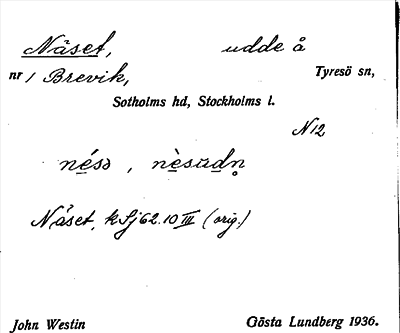 Näset, udde å
nr 1 Brevik, Tyresö sn,
Sotholms hd, Stockholms l.
N12
nésə, nèsu̇dn̥
Näset, k Sj62.10 III (orig.)
John Westin Gösta Lundberg 1936.